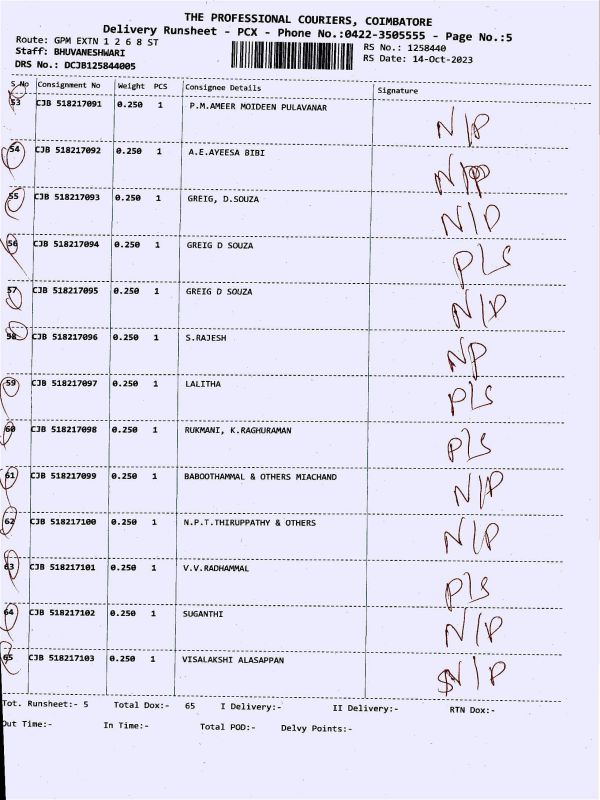 THE PROFESSIONAL COURIERS, COIMBATORE
Delivery Runsheet - PCX - Phone No.:0422-3505555 - Page No.:5
Route: GPM EXTN 1 2 6 8 ST
RS No.: 1258440
Staff: BHUVANESHWARI
RS Date: 14-Oct-2023
DRS No.: DCJB125844005
S.No Consignment No Weight PCS Consignee Details Signature
53 CJB 518217091 0.250 1 P.M.AMEER MOIDEEN PULAVANAR N/P
54 CJB 518217092 0.250 1 A.E.AYEESA BIBI N/P
55 CJB 518217093 0.250 1 GREIG, D.SOUZA N/P
56 CJB 518217094 0.250 1 GREIG D SOUZA PLS
57 CJB 518217095 0.250 1 GREIG D SOUZA N/P
58 CJB 518217096 0.250 1 S.RAJESH NP
59 CJB 518217097 0.250 1 LALITHA PLS
60 CJB 518217098 0.250 1 RUKMANI, K.RAGHURAMAN PLS
61 CJB 518217099 0.250 1 BABOOTHAMMAL & OTHERS MIACHAND N/P
62 CJB 518217100 0.250 1 N.P.T.THIRUPPATHY & OTHERS N/P
63 CJB 518217101 0.250 1 V.V.RADHAMMAL PLS
64 CJB 518217102 0.250 1 SUGANTHI N/P
65 CJB 518217103 0.250 1 VISALAKSHI ALASAPPAN N/P
Tot. Runsheet:- 5 Total Dox:- 65 I Delivery:- II Delivery:- RTN Dox:-
Out Time:- In Time:- Total POD:- Delvy Points:-